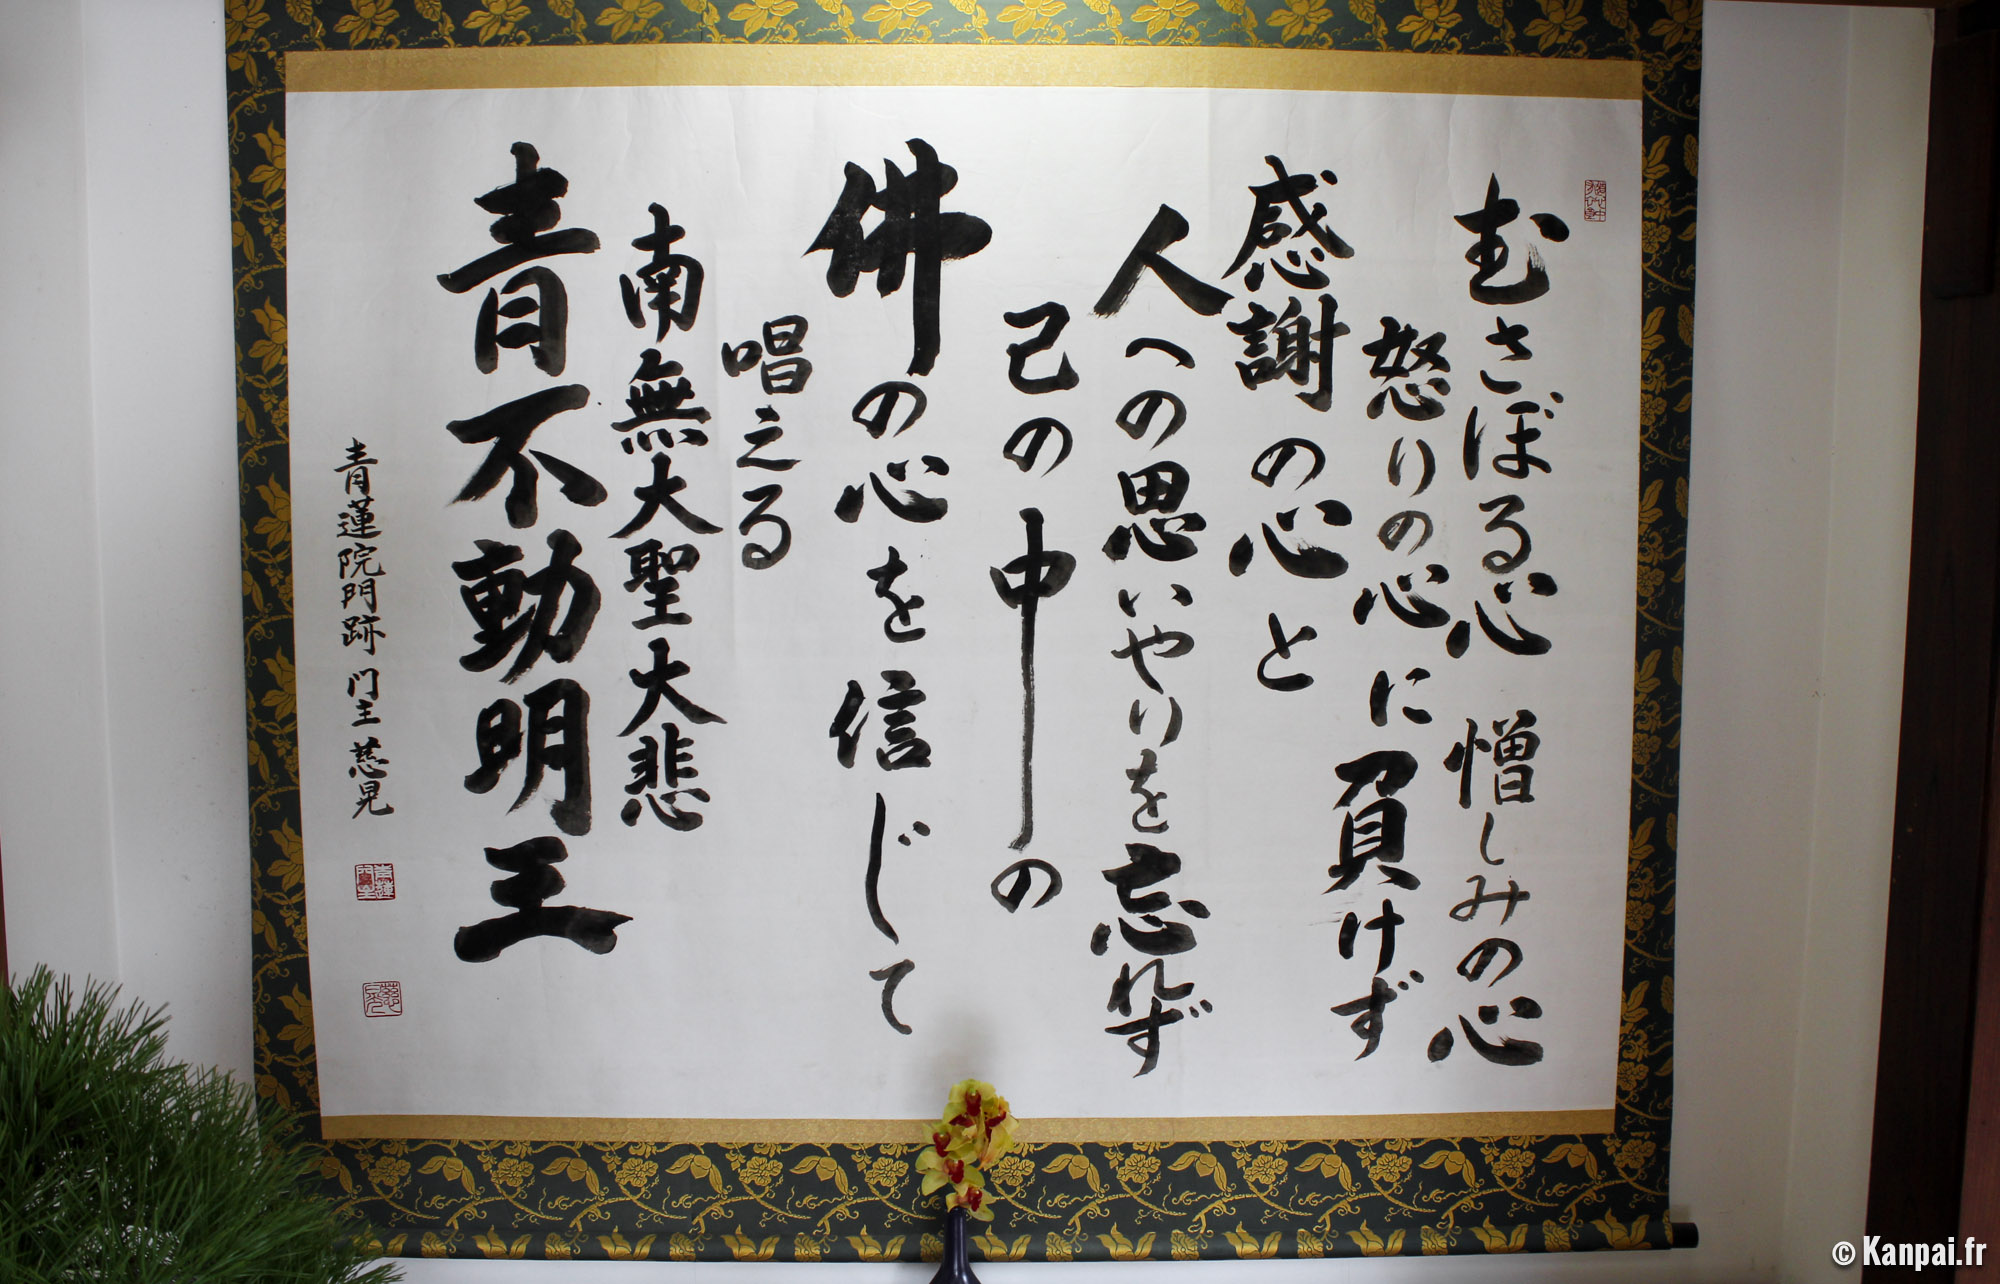 むさぼる心 憎しみの心
怒りの心に負けず
感謝の心と
人への思いやりを忘れず
己の中の
佛の心を信じて
唱える
南無大聖大悲
青不動明王
青蓮院門跡 門主 慈晃
© Kanpai.fr